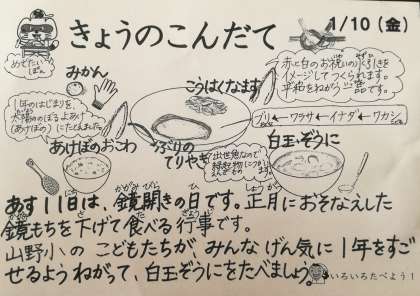 きょうのこんだて
1/10（金）
めでたい
ぽん
みかん
こうはくなます
赤と白のお祝いの水引きを
イメージしてつくられます。
平和をねがう一品です。
年のはじまりを、
太陽がのぼるようす
（あけぼの）にたとえました。
あけぼのおこわ
ぶりの
てりやき
出世魚なので
縁起物に
ブリ←ワラサ←イナダ←ワカシ
白玉ぞうに
あす11日は、鏡開きの日です。正月におそなえした
かがみびら ひ しょうがつ
鏡もちを下げて食べる行事です。
山野小の こどもたちが みんな げん気に 1年をすご
せるよう ねがって、白玉ぞうにをたべましょう。
いろいろたべよう！